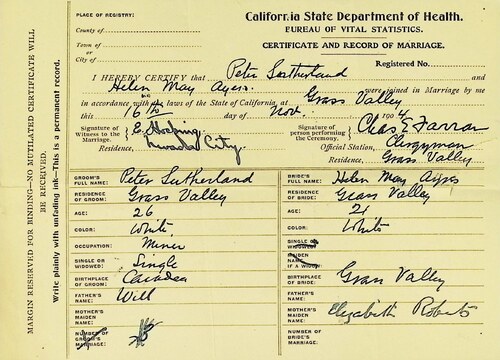 PLACE OF REGISTRY:
California State Department of Health.
BUREAU OF VITAL STATISTICS.
CERTIFICATE AND RECORD OF MARRIAGE.
County of
Town of
or
City of
Registered No.
I HEREBY CERTIFY that Peter Sutherland and
Helen May Ayers were joined in Marriage by me
in accordance with the laws of the State of California at Grass Valley
this 16th day of Nov. 1904
Signature of Witness to the Marriage, E. Hosking
Residence, Nevada City.
Signature of person performing the Ceremony, Chas E Farrar
Official Station, Clergyman
Residence, Grass Valley
GROOM'S FULL NAME: Peter Sutherland
RESIDENCE OF GROOM: Grass Valley
AGE: 26
COLOR: White
OCCUPATION: Miner
SINGLE OR WIDOWED: Single
BIRTHPLACE OF GROOM: Canada
FATHER'S NAME: Will
MOTHER'S MAIDEN NAME:
NUMBER OF GROOM'S MARRIAGE:
BRIDE'S FULL NAME: Helen May Ayres
RESIDENCE OF BRIDE: Grass Valley
AGE: 21
COLOR: White
SINGLE OR WIDOWED:
MAIDEN NAME, IF A WIDOW:
BIRTHPLACE OF BRIDE: Grass Valley
FATHER'S NAME:
MOTHER'S MAIDEN NAME: Elizabeth Roberts
NUMBER OF BRIDE'S MARRIAGE:
MARGIN RESERVED FOR BINDING—NO MUTILATED CERTIFICATE WILL
BE RECEIVED.
Write plainly with unfading ink—This is a permanent record.